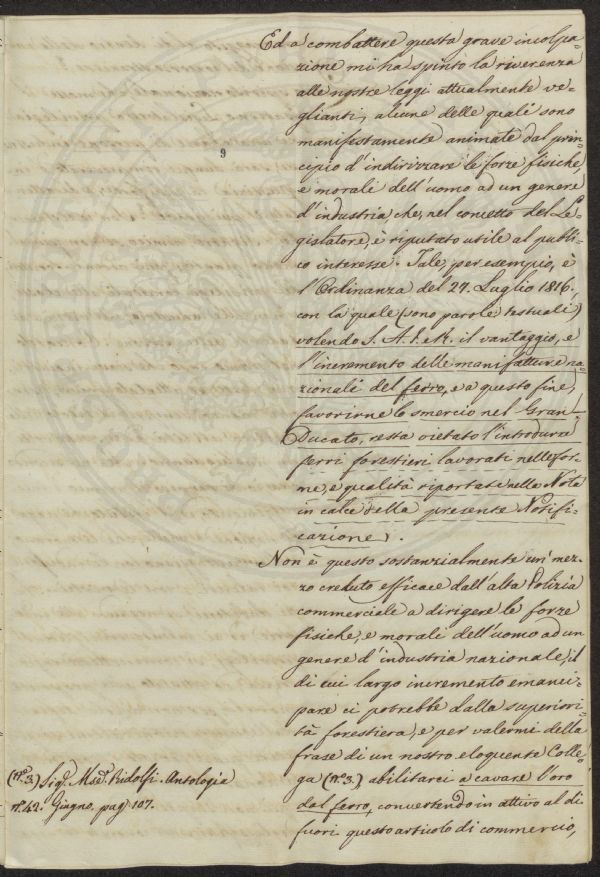 Ed a combattere questa grave incolpa=
zione mi ha spinto la riverenza
alle nostre leggi attualmente ve=
glianti, alcune delle quali sono
manifestamente animate dal prin=
cipio d'indirizzare le forze fisiche,
e morali dell'uomo ad un genere
d'industria che, nel concetto del Le=
gislatore, è riputato utile al pubbli=
co interesse. Tale, per esempio, è
l'Ordinanza del 27. Luglio 1816.,
con la quale (sono parole testuali)
volendo S. A. I. e R. il vantaggio, e
l'incremento delle manifatture na=
zionali del ferro, e a questo fine
favorirne lo smercio nel Gran=
Ducato, resta vietato l'introdurre
ferri forestieri lavorati nelle for=
me, e qualità riportate nella Nota
in calce della presente Notifi=
cazione.
Non è questo sostanzialmente un mez=
zo creduto efficace dall'alta Polizia
commerciale a dirigere le forze
fisiche, e morali dell'uomo ad un
genere d'industria nazionale, il
di cui largo incremento emanci=
pare ci potrebbe dalla superiori=
tà forestiera, e per valermi della
frase di un nostro eloquente Colle=
ga (n.° 3.), abilitarci a cavare l'oro
dal ferro, convertendo in attivo al di
fuori questo articolo di commercio,
(n.° 3.) Sig.r M.se Ridolfi. Antologia
n.° 42. Giugno, pag. 107.
9